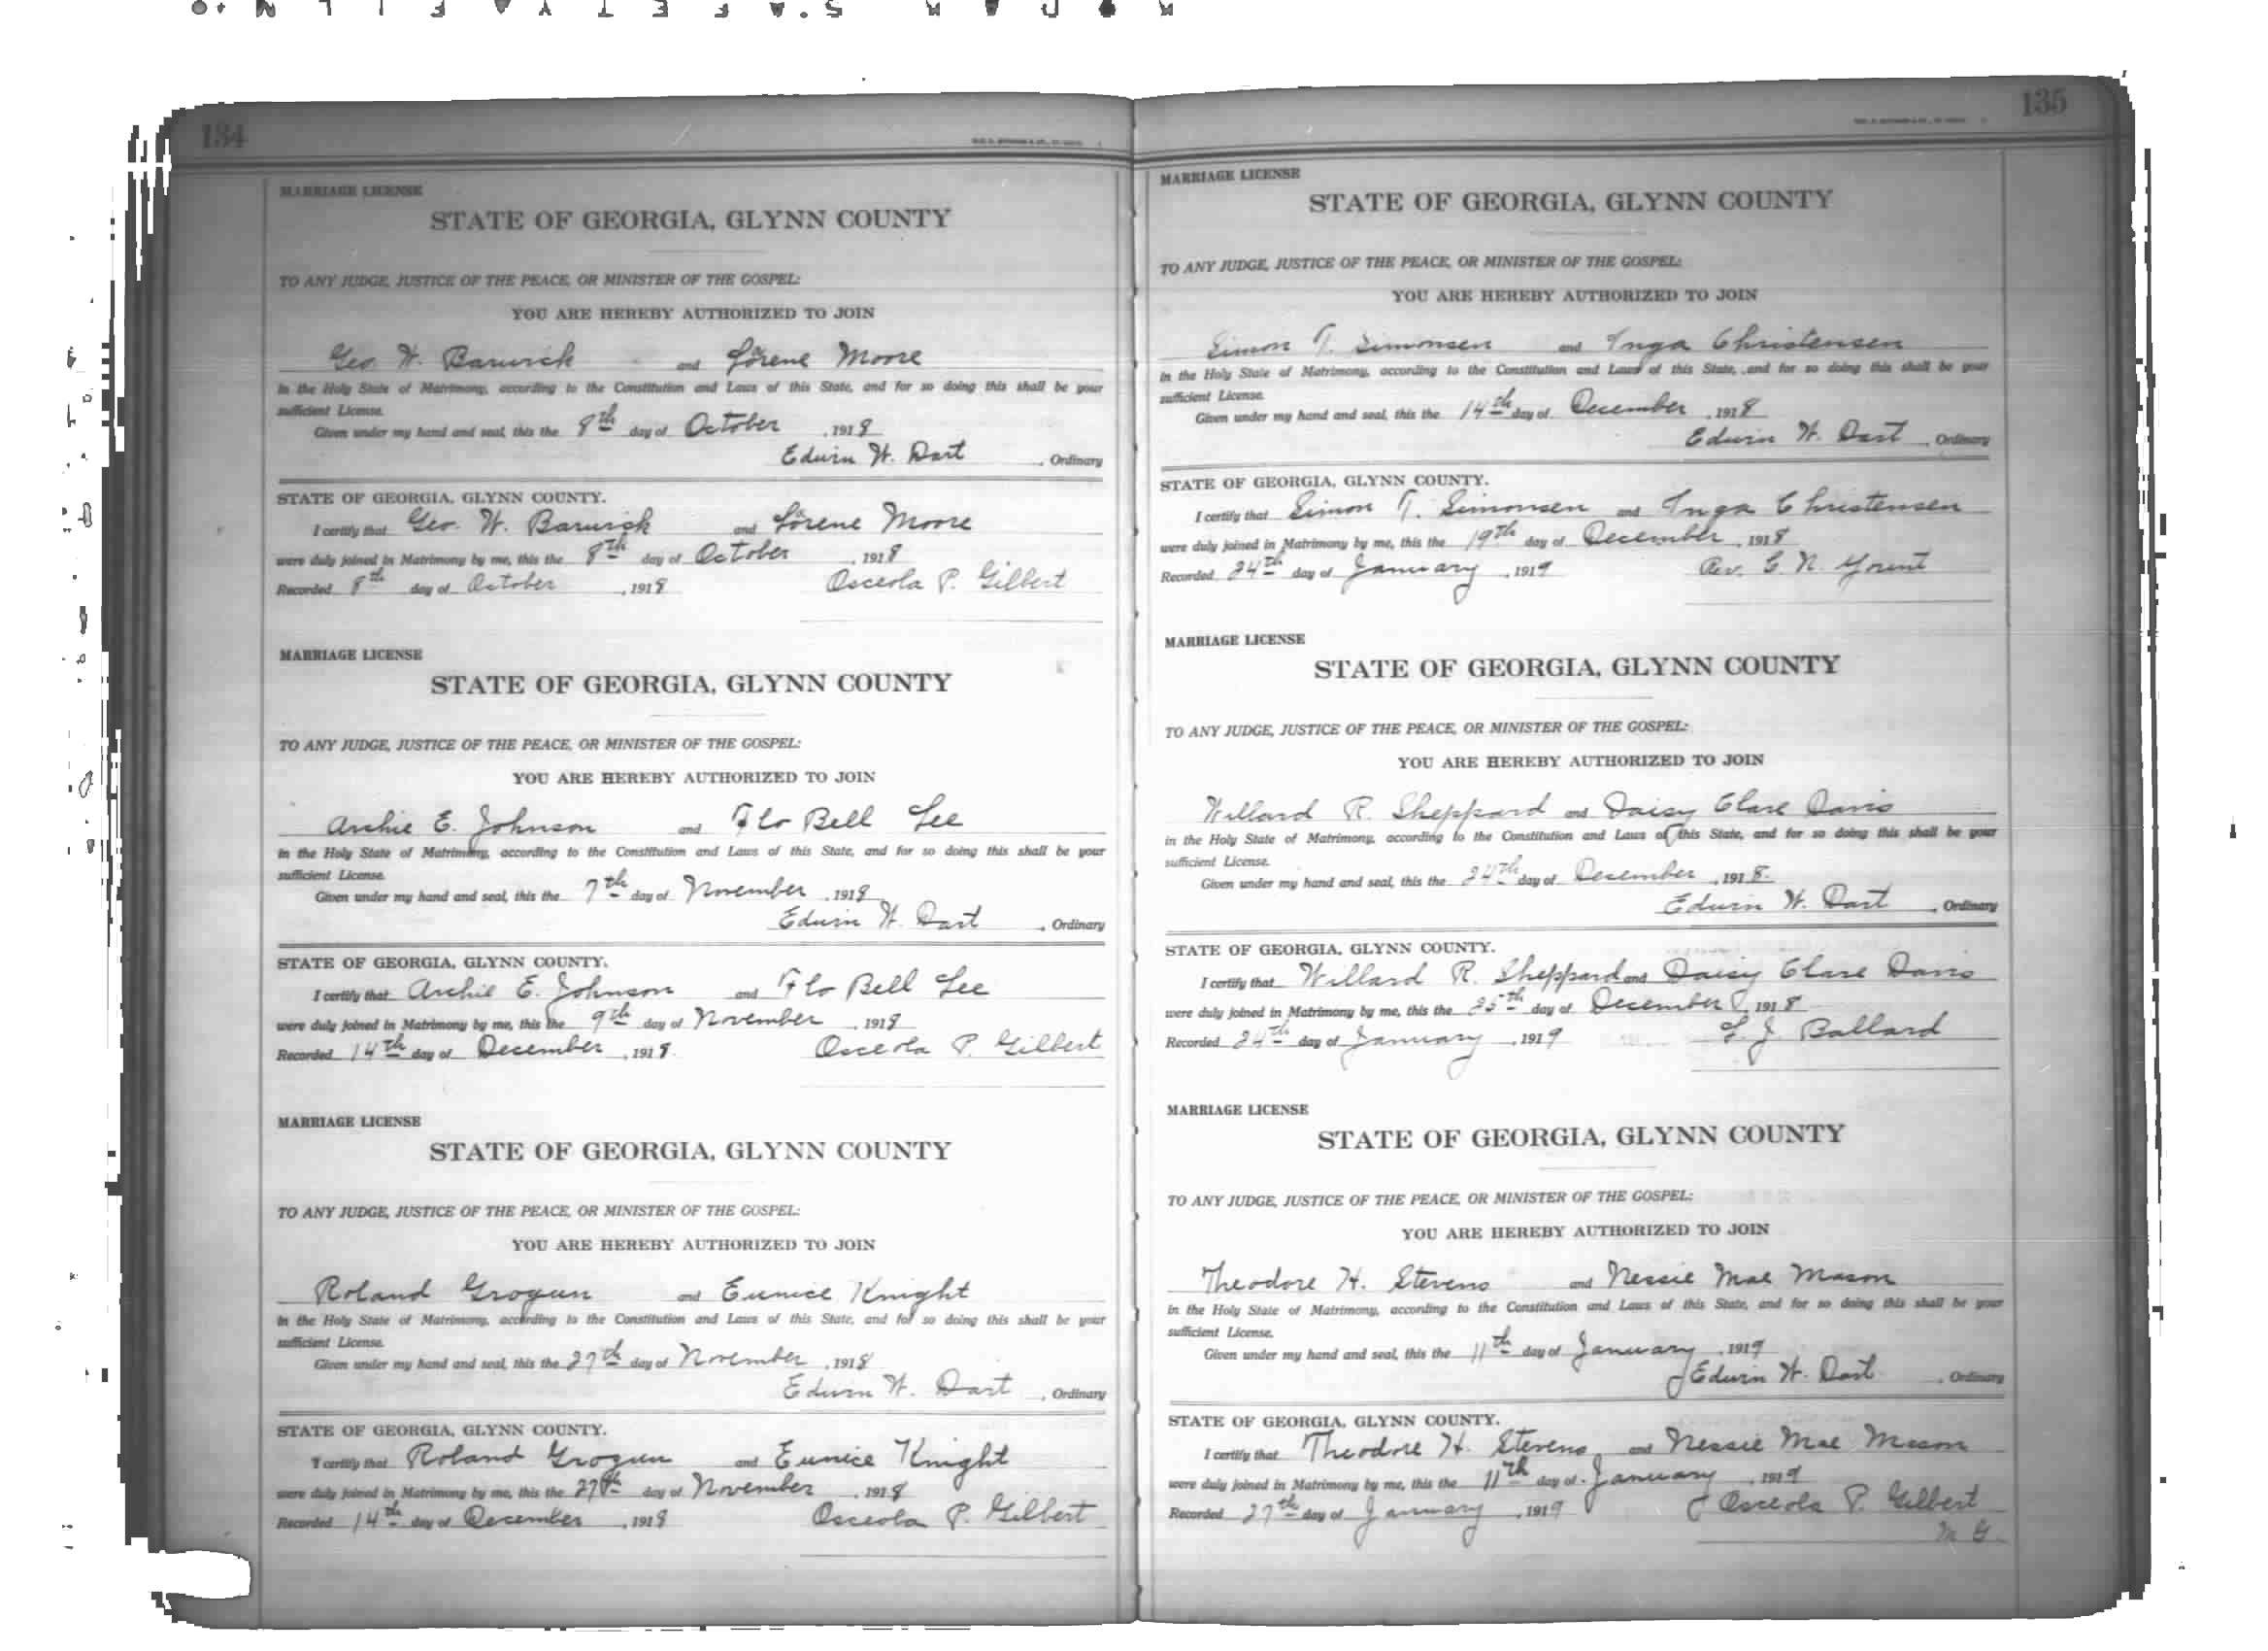 134
MARRIAGE LICENSE
STATE OF GEORGIA, GLYNN COUNTY
TO ANY JUDGE, JUSTICE OF THE PEACE, OR MINISTER OF THE GOSPEL:
YOU ARE HEREBY AUTHORIZED TO JOIN
Geo. W. Barwick and Lorene Moore
in the Holy State of Matrimony, according to the Constitution and Laws of this State, and for so doing this shall be your
sufficient License.
Given under my hand and seal, this the 8th day of October, 1918
Edwin W. Dart, Ordinary
STATE OF GEORGIA, GLYNN COUNTY.
I certify that Geo. W. Barwick and Lorene Moore
were duly joined in Matrimony by me, this the 8th day of October, 1918
Recorded 8th day of October, 1918 Osceola P. Gilbert
MARRIAGE LICENSE
STATE OF GEORGIA, GLYNN COUNTY
TO ANY JUDGE, JUSTICE OF THE PEACE, OR MINISTER OF THE GOSPEL:
YOU ARE HEREBY AUTHORIZED TO JOIN
Archie E. Johnson and Flo Bell Lee
in the Holy State of Matrimony, according to the Constitution and Laws of this State, and for so doing this shall be your
sufficient License.
Given under my hand and seal, this the 7th day of November, 1918
Edwin W. Dart, Ordinary
STATE OF GEORGIA, GLYNN COUNTY.
I certify that Archie E. Johnson and Flo Bell Lee
were duly joined in Matrimony by me, this the 9th day of November, 1918
Recorded 14th day of December, 1918. Osceola P. Gilbert
MARRIAGE LICENSE
STATE OF GEORGIA, GLYNN COUNTY
TO ANY JUDGE, JUSTICE OF THE PEACE, OR MINISTER OF THE GOSPEL:
YOU ARE HEREBY AUTHORIZED TO JOIN
Roland Grogan and Eunice Knight
in the Holy State of Matrimony, according to the Constitution and Laws of this State, and for so doing this shall be your
sufficient License.
Given under my hand and seal, this the 27th day of November, 1918
Edwin W. Dart, Ordinary
STATE OF GEORGIA, GLYNN COUNTY.
I certify that Roland Grogan and Eunice Knight
were duly joined in Matrimony by me, this the 27th day of November, 1918
Recorded 14th day of December, 1918 Osceola P. Gilbert
135
MARRIAGE LICENSE
STATE OF GEORGIA, GLYNN COUNTY
TO ANY JUDGE, JUSTICE OF THE PEACE, OR MINISTER OF THE GOSPEL:
YOU ARE HEREBY AUTHORIZED TO JOIN
Simon T. Simonsen and Inga Christensen
in the Holy State of Matrimony, according to the Constitution and Laws of this State, and for so doing this shall be your
sufficient License.
Given under my hand and seal, this the 14th day of December, 1918
Edwin W. Dart, Ordinary
STATE OF GEORGIA, GLYNN COUNTY.
I certify that Simon T. Simonsen and Inga Christensen
were duly joined in Matrimony by me, this the 19th day of December, 1918
Recorded 24th day of January, 1919 Rev. G. N. Yount
MARRIAGE LICENSE
STATE OF GEORGIA, GLYNN COUNTY
TO ANY JUDGE, JUSTICE OF THE PEACE, OR MINISTER OF THE GOSPEL:
YOU ARE HEREBY AUTHORIZED TO JOIN
Willard R. Sheppard and Daisy Clare Davis
in the Holy State of Matrimony, according to the Constitution and Laws of this State, and for so doing this shall be your
sufficient License.
Given under my hand and seal, this the 24th day of December, 1918.
Edwin W. Dart, Ordinary
STATE OF GEORGIA, GLYNN COUNTY.
I certify that Willard R. Sheppard and Daisy Clare Davis
were duly joined in Matrimony by me, this the 25th day of December, 1918
Recorded 24th day of January, 1919 L. J. Ballard
MARRIAGE LICENSE
STATE OF GEORGIA, GLYNN COUNTY
TO ANY JUDGE, JUSTICE OF THE PEACE, OR MINISTER OF THE GOSPEL:
YOU ARE HEREBY AUTHORIZED TO JOIN
Theodore H. Stevens and Nessie Mae Mason
in the Holy State of Matrimony, according to the Constitution and Laws of this State, and for so doing this shall be your
sufficient License.
Given under my hand and seal, this the 11th day of January, 1919
Edwin W. Dart, Ordinary
STATE OF GEORGIA, GLYNN COUNTY.
I certify that Theodore H. Stevens and Nessie Mae Mason
were duly joined in Matrimony by me, this the 11th day of January, 1919
Recorded 27th day of January, 1919 Osceola P. Gilbert
M G.